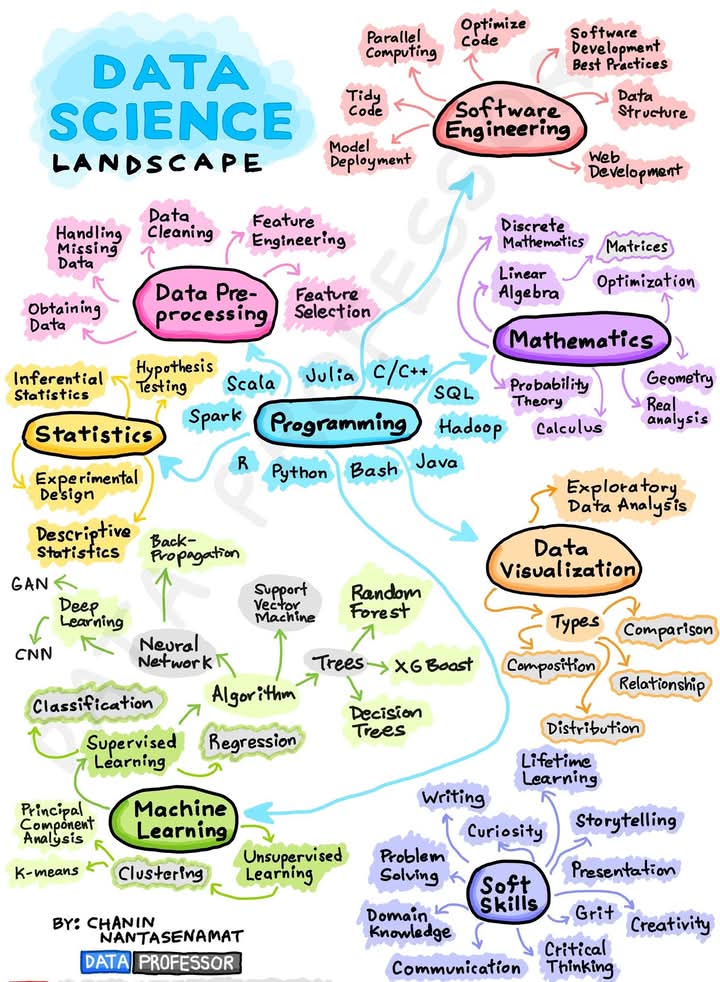 DATA
SCIENCE
LANDSCAPE
Parallel
Computing
Optimize
Code
Software
Development
Best Practices
Tidy
Code
Software
Engineering
Data
Structure
Model
Deployment
Web
Development
Handling
Missing
Data
Data
Cleaning
Feature
Engineering
Obtaining
Data
Data Pre-
processing
Feature
Selection
Discrete
Mathematics
Matrices
Linear
Algebra
Optimization
Mathematics
Probability
Theory
Calculus
Geometry
Real
analysis
Inferential
Statistics
Hypothesis
Testing
Statistics
Experimental
Design
Descriptive
Statistics
Scala
Julia
C/C++
SQL
Spark
Programming
Hadoop
R
Python
Bash
Java
Exploratory
Data Analysis
Data
Visualization
Types
Comparison
Composition
Relationship
Distribution
Back-
Propagation
GAN
Deep
Learning
CNN
Neural
Network
Support
Vector
Machine
Random
Forest
Trees
XGBoost
Algorithm
Decision
Trees
Classification
Supervised
Learning
Regression
Machine
Learning
Principal
Component
Analysis
K-means
Clustering
Unsupervised
Learning
Lifetime
Learning
Writing
Curiosity
Storytelling
Problem
Solving
Presentation
Soft
Skills
Domain
Knowledge
Grit
Creativity
Communication
Critical
Thinking
BY: CHANIN
NANTASENAMAT
DATA PROFESSOR
DATA PROFESSOR